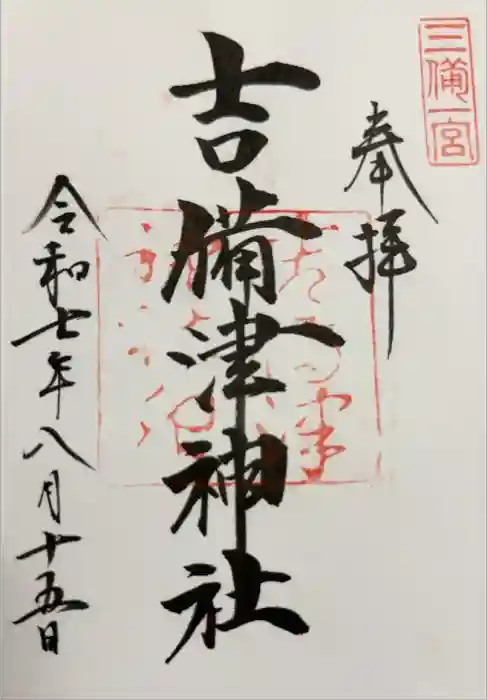 三備一宮
奉拝
吉備津神社
令和七年八月十五日